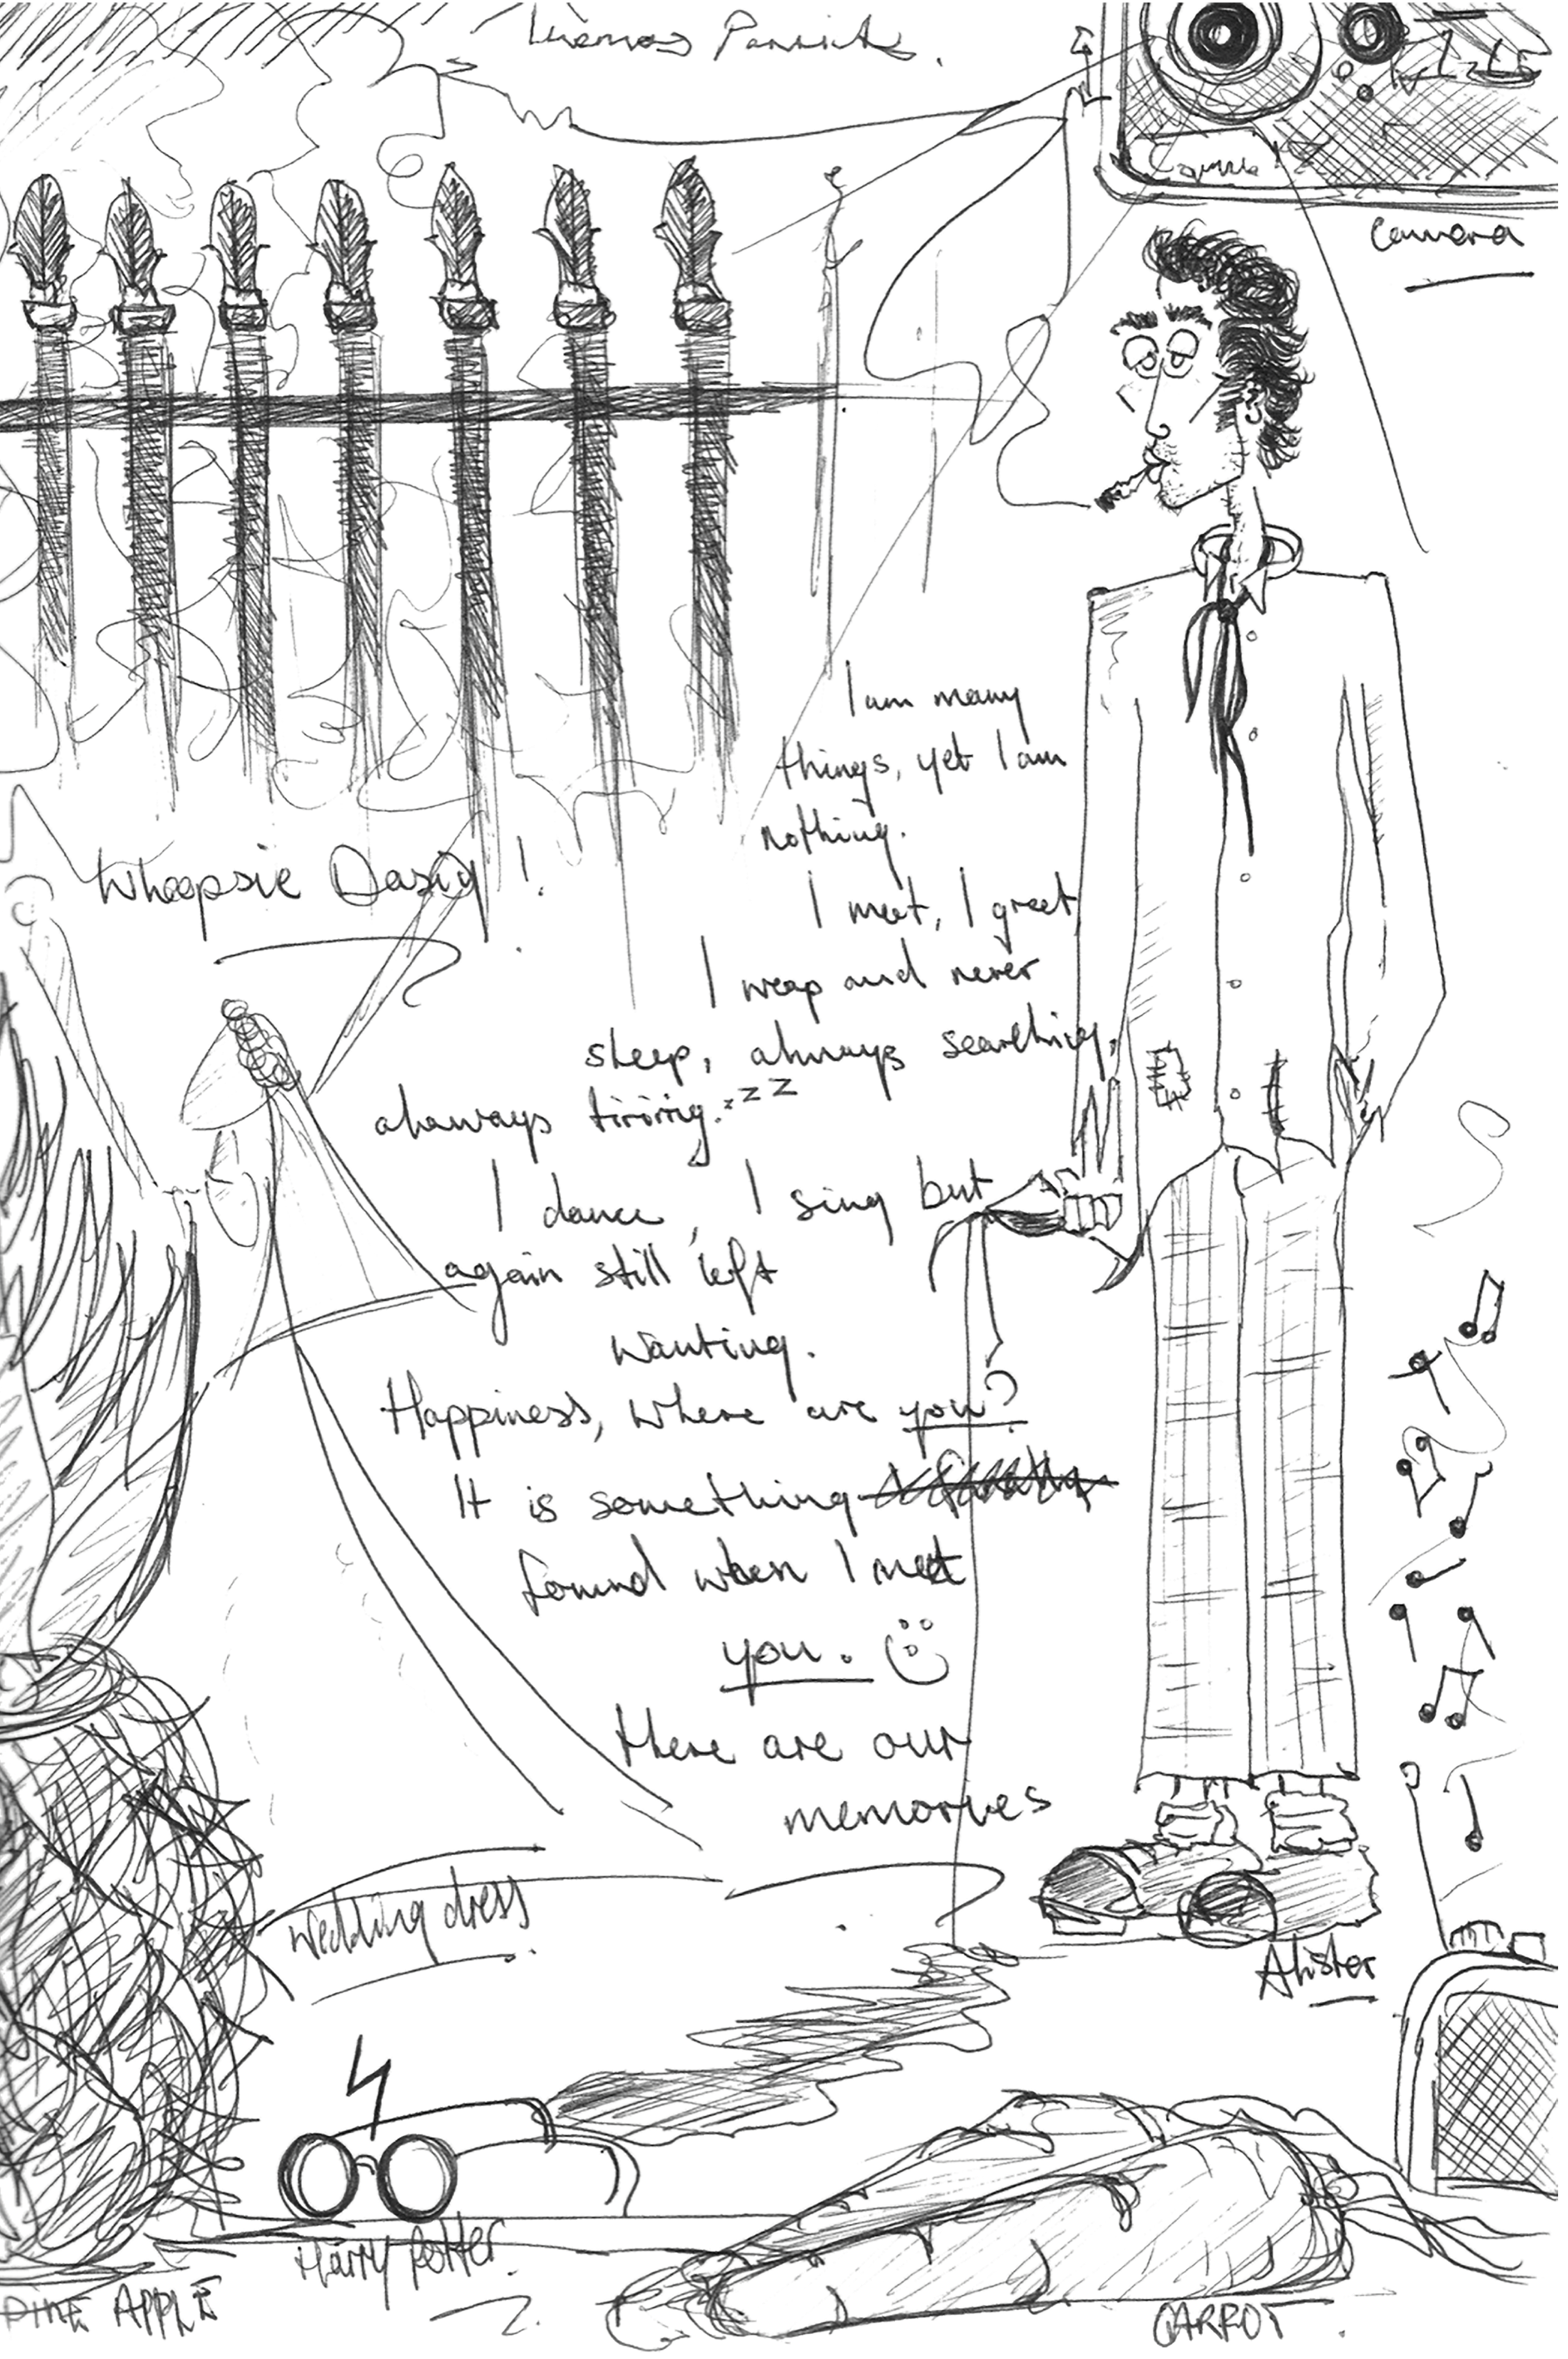 Camera
Whoopsie Dasiy!
I am many
things, yet I am
nothing.
I meet, I greet
I weep and never
sleep, always searching,
always tiriring. zzz
I dance, I sing but
again still left
wanting.
Happiness, where are you?
It is something
found when I meet
you.
there are our
memories
wedding dress
Alister
Harry Potter
PINE APPLE
CARROT